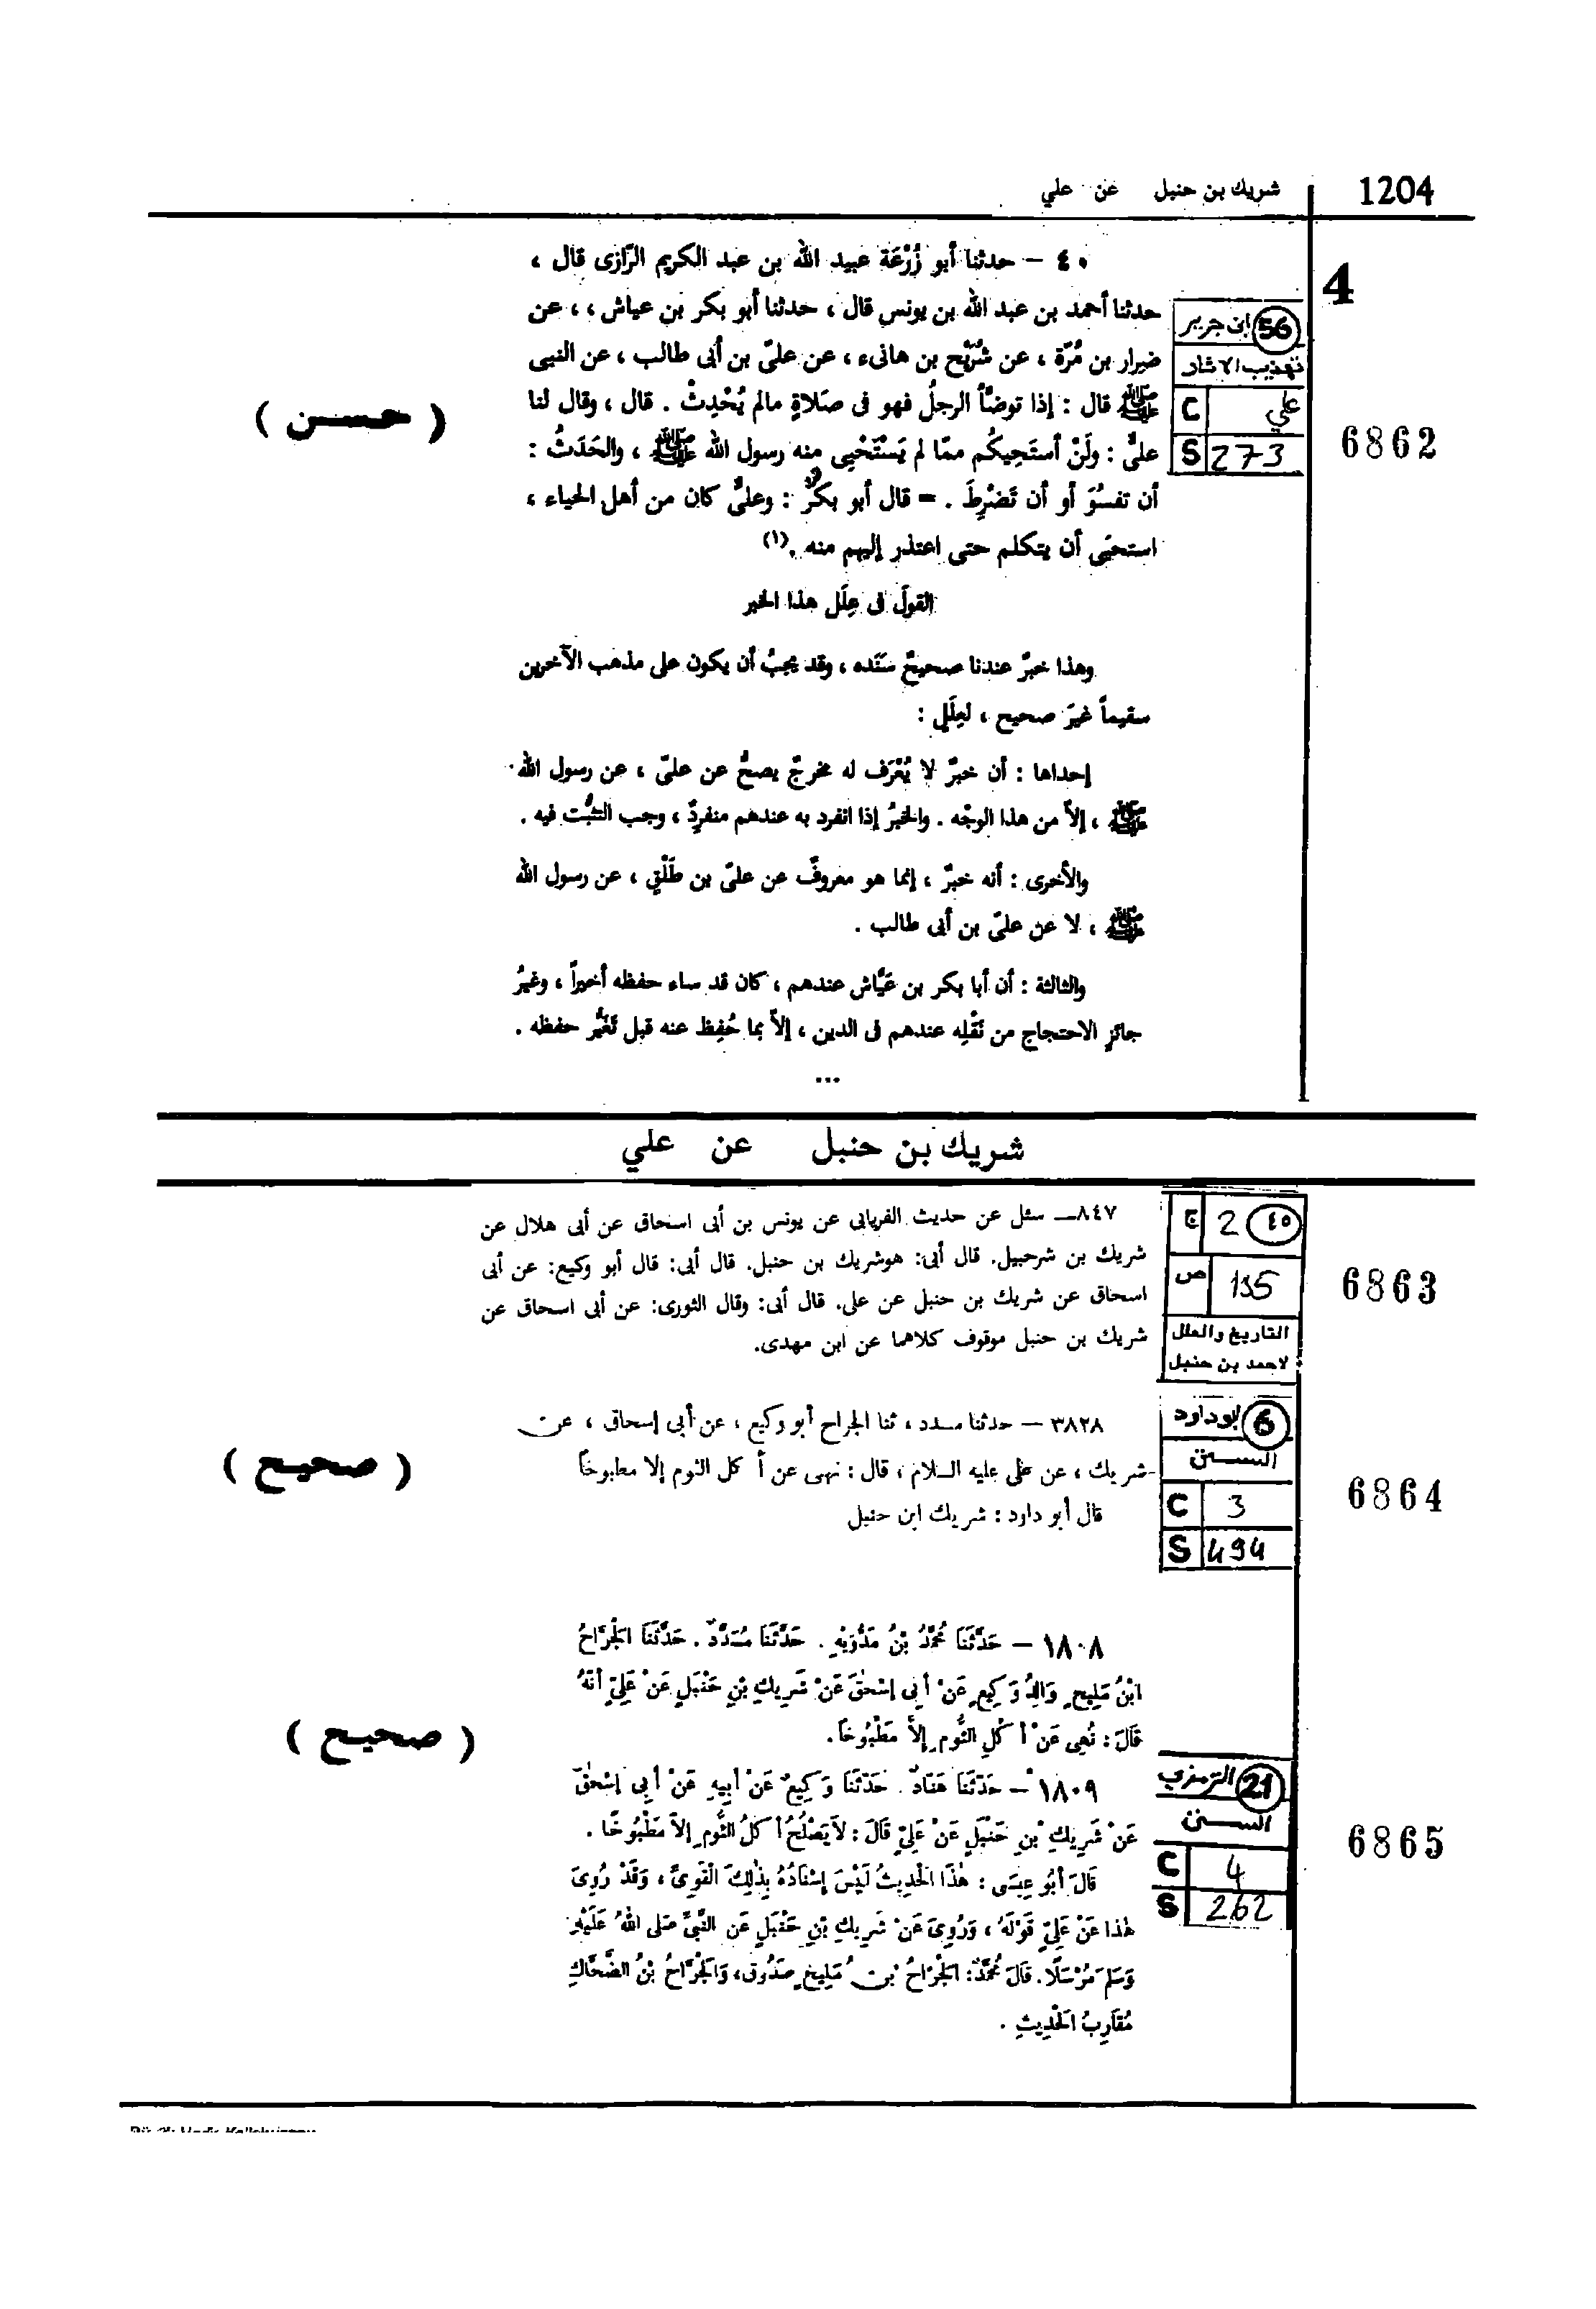 1204
شريك بن حنبل عن علي
٤٠ – حدثنا أبو زُرْعَة عبيد الله بن عبد الكريم الرّازى قال ،
حدثنا أحمد بن عبد الله بن يونس قال ، حدثنا أبو بكر بن عياش ، ، عن
ضِرار بن مُرّة ، عن شُرَيْح بن هانىء ، عن علىّ بن أبى طالب ، عن النبى
ﷺ قال : إذا توضَّأ الرجلُ فهو فى صَلاةٍ مالم يُحْدِثْ . قال ، وقال لنا
علىٌّ : ولَنْ أستَحِيكُم ممّا لم يَسْتَحْيِى منه رسول الله ﷺ ، والحَدَثُ :
أن تفسُوَ أو أن تَضْرِطَ . = قال أبو بكر : وعلىٌّ كان من أهل الحياء ،
استحيَى أن يتكلم حتى اعتذر إليهم منه .(١)
القولُ فى عِلَل هذا الخبر
وهذا خبرٌ عندنا صحيحٌ سَنَده ، وقد يجبُ أن يكون على مذهب الآخرين
سقيماً غيرَ صحيح ، لعِلَلٍ :
إحداها : أن خبرٌ لا يُعْرَف له مخرجٌ يصحُّ عن علىّ ، عن رسول الله
ﷺ ، إلاَّ من هذا الوجْه . والخبرُ إذا انفرد به عندهم منفردٌ ، وجب التثبُّت فيه .
والأخرى : أنه خبرٌ ، إنما هو معروفٌ عن علىّ بن طَلْقٍ ، عن رسول الله
ﷺ ، لا عن علىّ بن أبى طالب .
والثالثة : أن أبا بكر بن عَيَّاش عندهم ، كان قد ساء حفظه أخيراً ، وغيرُ
جائزٍ الاحتجاج من نَقْلِه عندهم فى الدين ، إلاَّ بما حُفِظ عنه قبل تَغَيُّر حفظه .
...
4
56 ابن جرير
تهذيب الاثار
C علي
S 273
6862
( حسن )
شريك بن حنبل عن علي
٨٤٧ـ سئل عن حديث الفريابى عن يونس بن أبى اسحاق عن أبى هلال عن
شريك بن شرحبيل. قال أبى: هوشريك بن حنبل. قال أبى: قال أبو وكيع: عن أبى
اسحاق عن شريك بن حنبل عن على. قال أبى: وقال الثورى: عن أبى اسحاق عن
شريك بن حنبل موقوف كلاهما عن ابن مهدى.
٤٥ 2 ج
195 ص
التاريخ والعلل
لاحمد بن حنبل
6863
٣٨٢٨ – حدثنا مسدد ، ثنا الجراح أبو وكيع ، عن أبى إسحاق ، عن
شريك ، عن على عليه السلام ، قال : نهى عن أكل الثوم إلا مطبوخاً
قال أبو داود : شريك ابن حنبل
6 ابو داود
السنن
C 3
S 494
6864
( صحيح )
١٨٠٨ – حَدَّثَنَا مُحَمَّدُ بْنُ مَدُّوَيْهِ . حَدَّثَنَا مُسَدَّدٌ . حَدَّثَنَا الْجَرَّاحُ
ابْنُ مَلِيحٍ وَالِدُ وَكِيعٍ عَنْ أَبِى إِسْحٰقَ عَنْ شَرِيكِ بْنِ حَنْبَلٍ عَنْ عَلِيٍّ أَنَّهُ
قَالَ : نُهِىَ عَنْ أَكْلِ الثُّومِ إِلاَّ مَطْبُوخاً.
١٨٠٩ – حَدَّثَنَا هَنَّادٌ . حَدَّثَنَا وَكِيعٌ عَنْ أَبِيهِ عَنْ أَبِى إِسْحٰقَ
عَنْ شَرِيكِ بْنِ حَنْبَلٍ عَنْ عَلِيٍّ قَالَ : لاَ يَصْلُحُ أَكْلُ الثُّومِ إِلاَّ مَطْبُوخًا .
قَالَ أَبُو عِيسَى : هٰذَا الْحَدِيثُ لَيْسَ إِسْنَادُهُ بِذٰلِكَ الْقَوِىِّ ، وَقَدْ رُوِىَ
هٰذا عَنْ عَلِيٍّ قَوْلَهُ ، وَرُوِىَ عَنْ شَرِيكِ بْنِ حَنْبَلٍ عَنِ النَّبِىِّ صَلَّى اللهُ عَلَيْهِ
وَسَلَّمَ مُرْسَلًا. قَالَ مُحَمَّدٌ: الْجَرَّاحُ بْنُ مَلِيحٍ صَدُوقٌ، وَالْجَرَّاحُ بْنُ الضَّحَّاكِ
مُقَارِبُ الْحَدِيثِ .
21 الترمذي
السنن
C 4
S 262
6865
( صحيح )